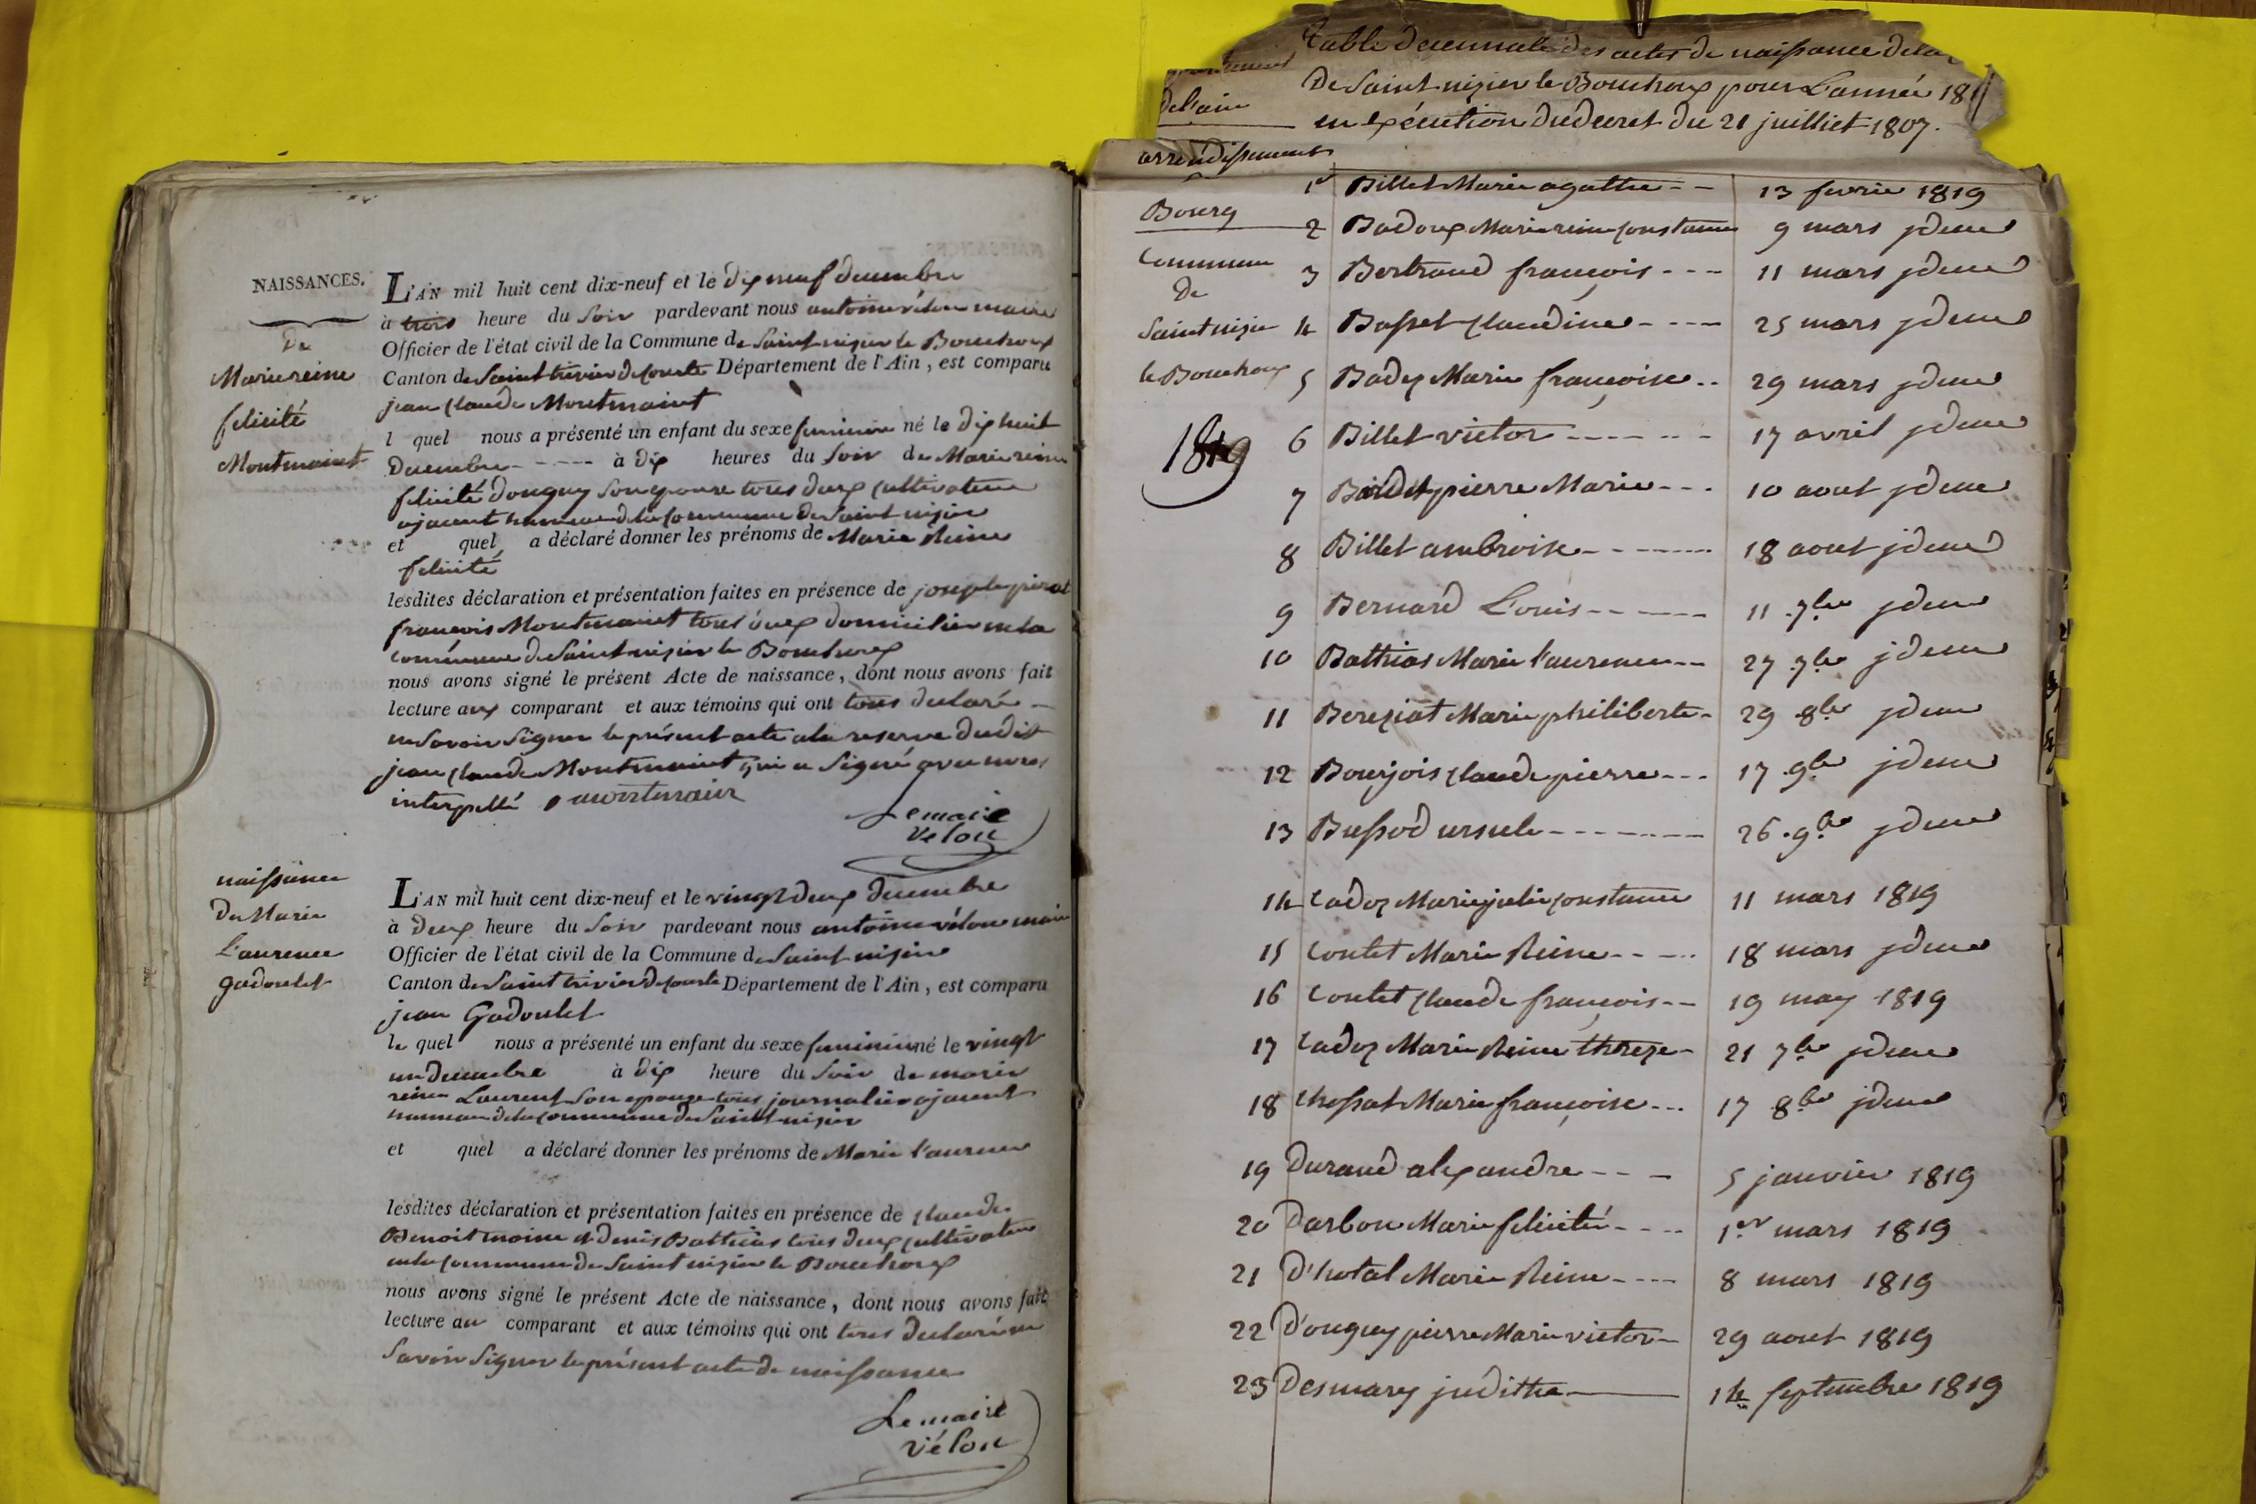 NAISSANCES.
De
Marie reine
felicité
Montmaint
L'AN mil huit cent dix-neuf et le dix neuf decembre
à trois heure du soir pardevant nous antoine vélon maire
Officier de l'état civil de la Commune de Saint nizier le Bouchoux
Canton de Saint trivier de courte Département de l'Ain, est comparu
jean claude Montmaint
l quel nous a présenté un enfant du sexe feminin né le dix huit
decembre à dix heures du soir de Marie reine
felicité douguy son epouse tous deux cultivateurs
ajacent hameau de la commune de Saint nizier
et quel a déclaré donner les prénoms de Marie Reine
felicité
lesdites déclaration et présentation faites en présence de joseph pirat
francois Montmaint tous deux domiciliés en la
commune de Saint nizier le Bouchoux
nous avons signé le présent Acte de naissance, dont nous avons fait
lecture aux comparant et aux témoins qui ont tous declaré
ne savoir signer le présent acte a la reserve dudit
jean claude Montmaint qui a signé avec nous
interpellé montmain
Le maire
vélon
naissance
De Marie
Laurence
gadoulet
L'AN mil huit cent dix-neuf et le vingt deux decembre
à deux heure du soir pardevant nous antoine vélon maire
Officier de l'état civil de la Commune de Saint nizier
Canton de Saint trivier de courte Département de l'Ain, est comparu
jean Gadoulet
le quel nous a présenté un enfant du sexe feminin né le vingt
un decembre à dix heure du soir de marie
reine Laurent son epouse tous journalier ajacent
hameau de la commune de Saint nizier
et quel a déclaré donner les prénoms de Marie laurence
lesdites déclaration et présentation faites en présence de claude
Benoit moine et denis Bathias tous deux cultivateurs
en la commune de Saint nizier le Bouchoux
nous avons signé le présent Acte de naissance, dont nous avons fait
lecture au comparant et aux témoins qui ont tous declaré ne
savoir signer le présent acte de naissance
Le maire
vélon
table decennale des actes de naissance de la
De Saint nizier le Bouchoux pour l'année 181
en exécution du decret du 21 juilliet 1807.
de l'ain
arrondissement
Bourg
Commune
De
Saint nizier
le Bouchoux
1819
1er Billet Marie agathe 13 fevrier 1819
2 Badoux Marie reine constance 9 mars jdem
3 Bertrand françois 11 mars jdem
4 Basset claudine 25 mars jdem
5 Badez Marie françoise 29 mars jdem
6 Billet victor 17 avril jdem
7 pierre Marie 10 aout jdem
8 Billet ambroise 18 aout jdem
9 Bernard Louis 11 7bre jdem
10 Bathias Marie laurence 27 7bre jdem
11 Bereziat Marie philiberte 29 8bre jdem
12 Bourjois claude pierre 17 9bre jdem
13 Bussod ursule 26 9bre jdem
14 Cadoz Marie julie constance 11 mars 1819
15 Contet Marie Reine 18 mars jdem
16 Contet claude françois 19 may 1819
17 Cadoz Marie Reine thereze 21 7bre jdem
18 Chossat Marie françoise 17 8bre jdem
19 Durand alexandre 5 janvier 1819
20 Darbon Marie felicité 1er mars 1819
21 D'hotal Marie Reine 8 mars 1819
22 D'ouguy pierre Marie victor 29 aout 1819
23 Desmary judithe 14 septembre 1819